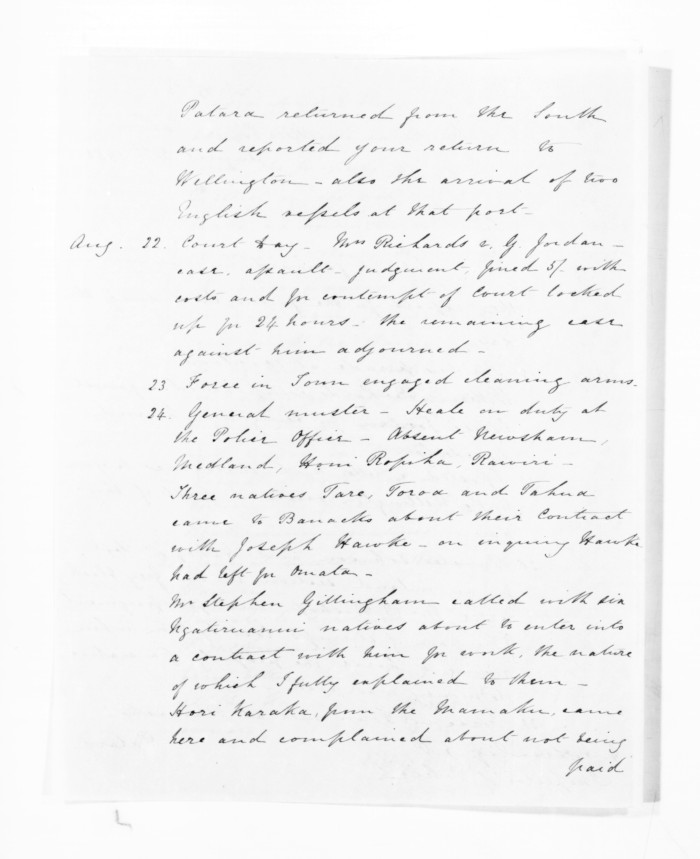 Patara returned from the South
and reported your return to
Wellington – also the arrival of two
English vessels at that port –
Aug. 22. Court day – Mrs Richards v. G. Jordan –
case, assault – judgment, fined 5/. with
costs and for contempt of Court locked
up for 24 hours – the remaining case
against him adjourned –
23 Force in Town engaged cleaning arms –
24. General muster – Heale on duty at
the Police Office – Absent Newsham,
Medland, Honi Ropiha, Rawiri –
Three natives Tare, Toroa and Tahua
came to Barracks about their Contract
with Joseph Hawke – on inquiry Hawke
had left for Omata –
Mr Stephen Gillingham called with six
Ngatiruanui natives about to enter into
a contract with him for work, the nature
of which I fully explained to them –
Hori Karaka, from the Mamaku, came
here and complained about not being
paid